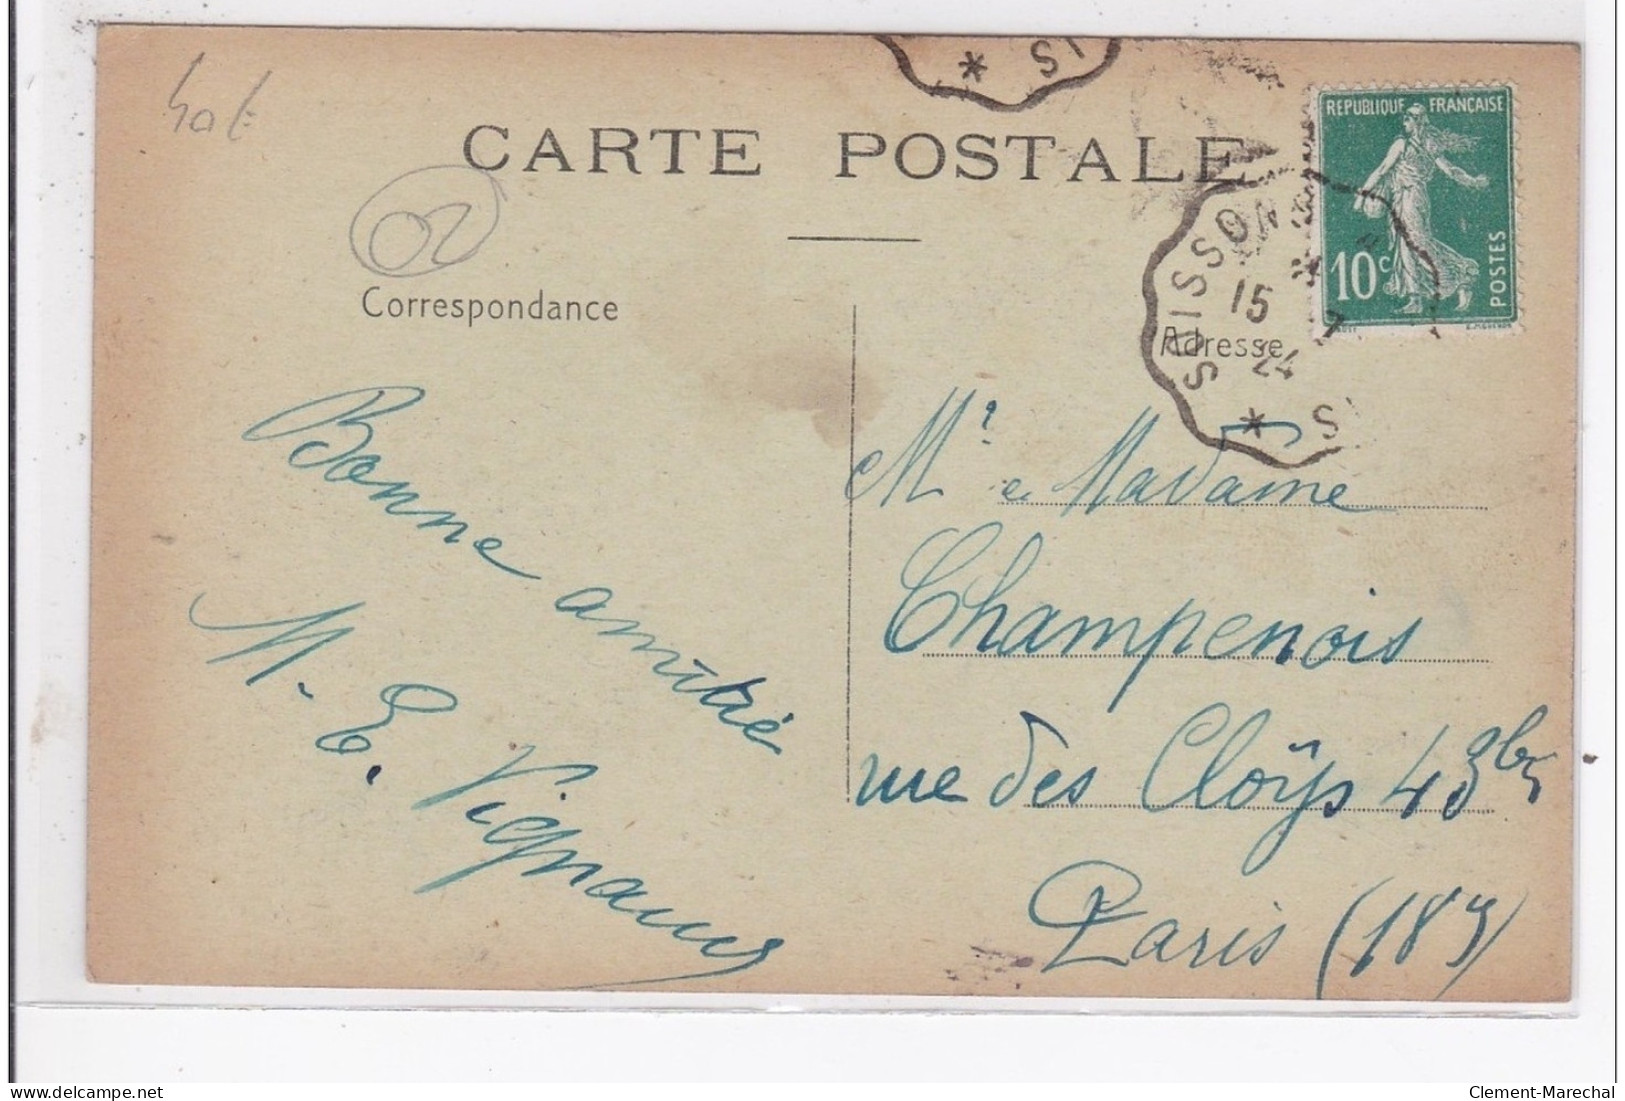 40 €
02
CARTE POSTALE
Correspondance
REPUBLIQUE FRANÇAISE
10c
POSTES
SOISSON
15
7
24
* S
* SI
Adresse
Bonne amitié
M. E. Vignaux
Mr e Madame
Champenois
rue des Cloÿs 43bis
Paris (18e)
delcampe.net
Clement-Marechal